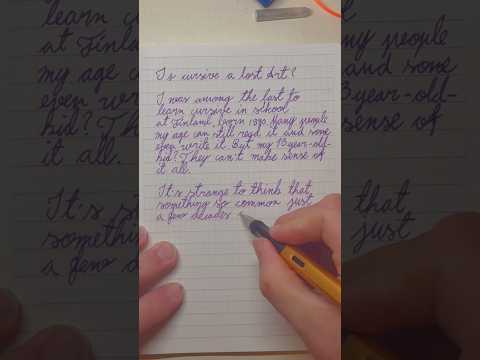 Is cursive a lost art?
I was among the last to
learn cursive in school
at Finland, born 1990. Many people
my age can still read it and some
even write it. But my 13-year-old-
kid? They can't make sense of
it all.
It's strange to think that
something so common just
a few decades